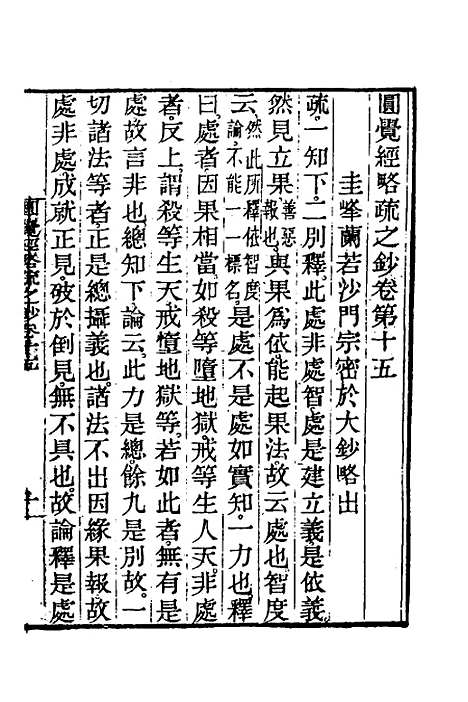 圓覺經略疏之鈔卷第十五
圭峯蘭若沙門宗密於大鈔略出
疏。一知下。二別釋此處非處智處是建立義。是依義。
然見立果善惡報也。與果爲依。能起果法。故云處也。智度
云。然此所釋依智度論。不能一一標名。是處不是處如實知。一力也。釋
曰。處者因果相當。如殺等墮地獄。戒等生人天。非處
者。反上。謂殺等生天。戒墮地獄等。若如此者。無有是
處。故言非也。總知下論云。此力是總。餘九是別。故。一
切諸法等者。正是總攝義也。諸法不出因緣果報。故
處非處成就正見。破於倒見。無不具也。故論釋是處
圓覺經略疏之鈔卷十五
十一